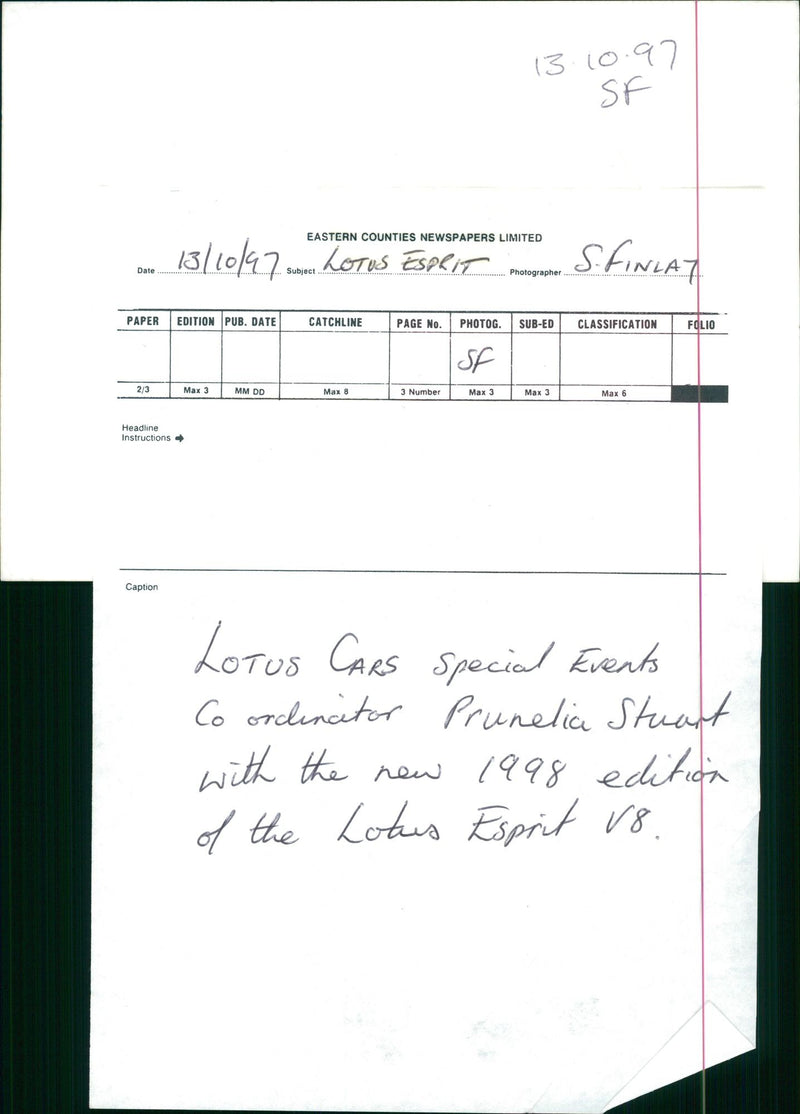 13.10.97
SF
EASTERN COUNTIES NEWSPAPERS LIMITED
Date 13/10/97 Subject LOTUS ESPRIT Photographer S. FINLAY
PAPER EDITION PUB. DATE CATCHLINE PAGE No. PHOTOG. SUB-ED CLASSIFICATION FOLIO
SF
2/3 Max 3 MM DD Max 8 3 Number Max 3 Max 3 Max 6
Headline
Instructions →
Caption
LOTUS CARS Special Events
Co ordinator Prunelia Stuart
with the new 1998 edition
of the Lotus Esprit V8.